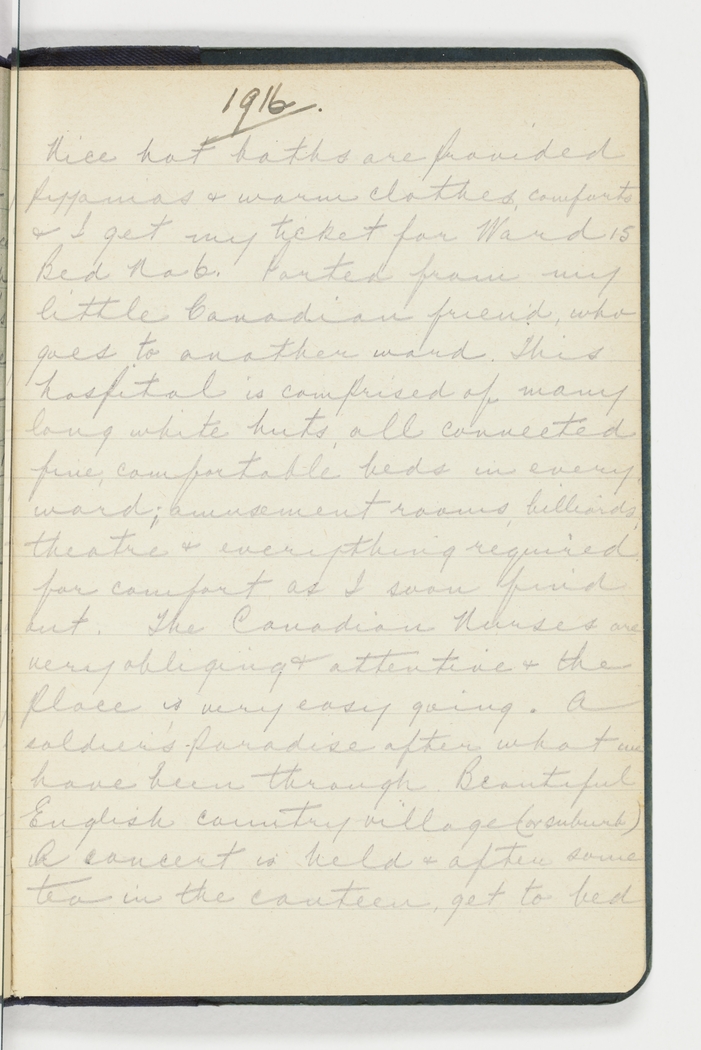 1916.
Nice hot baths are provided
pyjamas & warm clothes, comforts
& I get my ticket for Ward 15
Bed No 6. Parted from my
little Canadian friend, who
goes to another ward. This
hospital is comprised of many
long white huts, all connected
fine, comfortable beds in every
ward; amusement rooms, billiards,
theatre & everything required
for comfort as I soon find
out. The Canadian Nurses are
very obliging & attentive & the
place is very easy going. A
soldier's paradise after what we
have been through. Beautiful
English country village (or suburb)
A concert is held & after some
tea in the canteen, get to bed